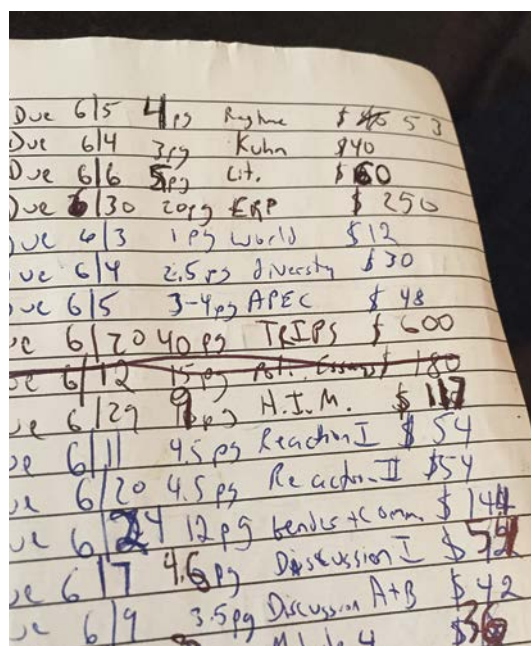 Due 6/5 4pg Ragtime $ 53
Due 6/4 3pg Kuhn $40
Due 6/6 5pg Lit. $ 60
Due 6/30 20pg ERP $ 250
ue 6/3 1pg world $12
ue 6/4 2.5pg diversity $ 30
ue 6/5 3-4pg APEC $ 48
e 6/20 40pg TRIPS $ 600
e 6/12 15pg Essays $ 180
e 6/29 9pg H.I.M. $ 117
ue 6/11 4.5pg Reaction I $ 54
ue 6/20 4.5pg Reaction II $54
ue 6/24 12pg Gender + Comm. $ 144
ue 6/7 pg Discussion I $
ue 6/9 3.5pg Discussion A+B $ 42
$36